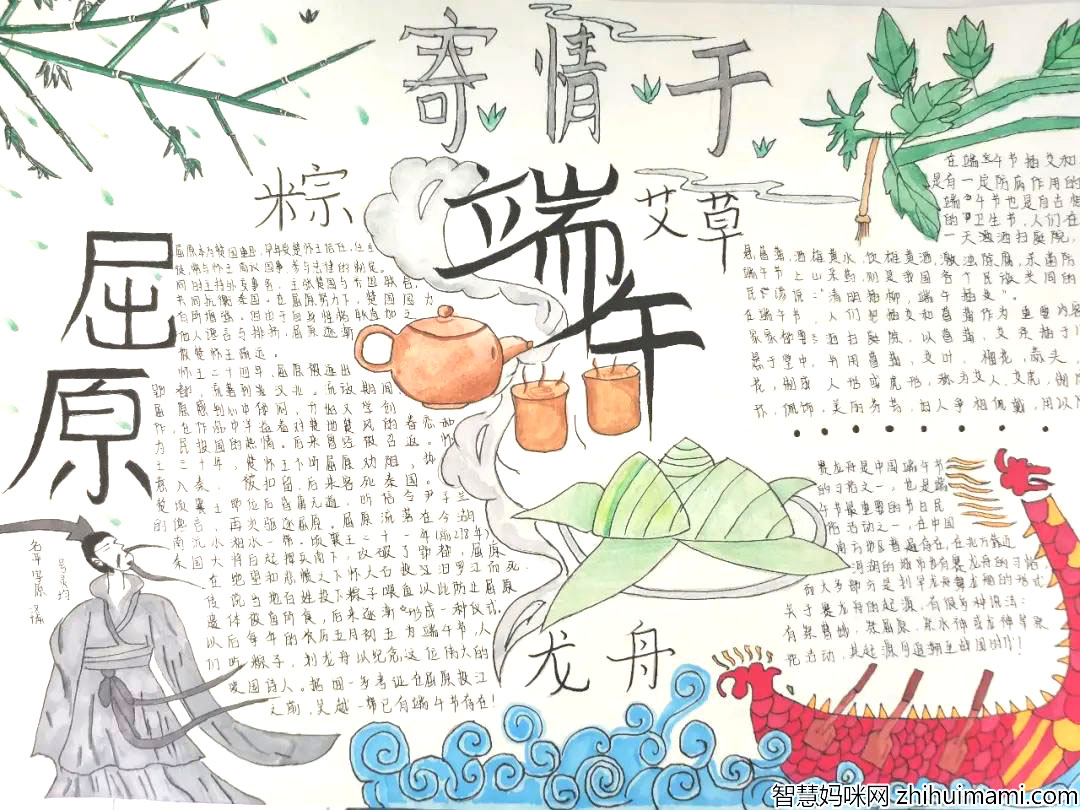 寄情于
端午
粽
艾草
屈
原
屈原本为楚国重臣,早年受楚怀王信任,任左
徒,常与怀王商议国事,参与法律的制定。
同时主持外交事务。主张楚国与齐国联合,
共同抗衡秦国。在屈原努力下,楚国国力
有所增强。但由于自身性格耿直加之
他人谗言与排挤,屈原逐渐
被楚怀王疏远。
怀王二十四年,屈原被逐出
郢都,流落到汉北。流放期间
屈原感到心中
作,在作品中洋溢着对楚地楚风的眷恋和
为民报国的热情。后来曾经被召返。怀
王三十年,楚怀王不听屈原劝阻,执
意入秦。被扣留,后来客死秦国。
楚顷襄王即位后昏庸无道,听信令尹子兰
的谗言,再次驱逐屈原。屈原流落在今湖
南沅水湘水一带。顷襄王二十一年(前278年)
秦国大将白起挥兵南下,攻破了郢都,屈原
在绝望和悲愤之下怀大石投汨罗江而死。
传说当地百姓投下粽子喂鱼以此防止屈原
遗体被鱼所食,后来逐渐形成一种仪式。
以后每年的农历五月初五为端午节,人
们吃粽子,划龙舟以纪念这位伟大的
爱国诗人。据闻一多考证在屈原投江
之前,吴越一带已有端午节存在!
名平字原
号灵均
在端午节插艾和
是有一定防病作用的
端午节也是自古
的"卫生节,人们在
一天洒扫庭院,
悬菖蒲,洒雄黄水,饮雄黄酒,激浊除腐,杀菌防
端午节上山采药,则是我国各个民族共同的
民谚说:"清明插柳,端午插艾"。
在端午节,人们把插艾和菖蒲作为重要内容
家家都洒扫庭院,以菖蒲,艾条插于
悬于堂中。并用菖蒲,艾叶,榴花,蒜头,
花,制成人形或虎形,称为艾人,艾虎,制成
佩饰,美丽芬芳,妇人争相佩戴,用以
赛龙舟是中国端午节
的习俗之一,也是端
午节最重要的节日民
俗活动之一,在中国
南方地区普遍存在,在北方靠近
河湖的城市也有赛龙舟的习俗,
而大多部分是划旱龙舟舞龙船的形式
关于赛龙舟的起源,有很多种说法:
有祭曹娥,祭屈原,祭水神或龙神等祭
祀活动,其起源可追溯至战国时代!
龙舟
智慧妈咪网 zhihuimami.com